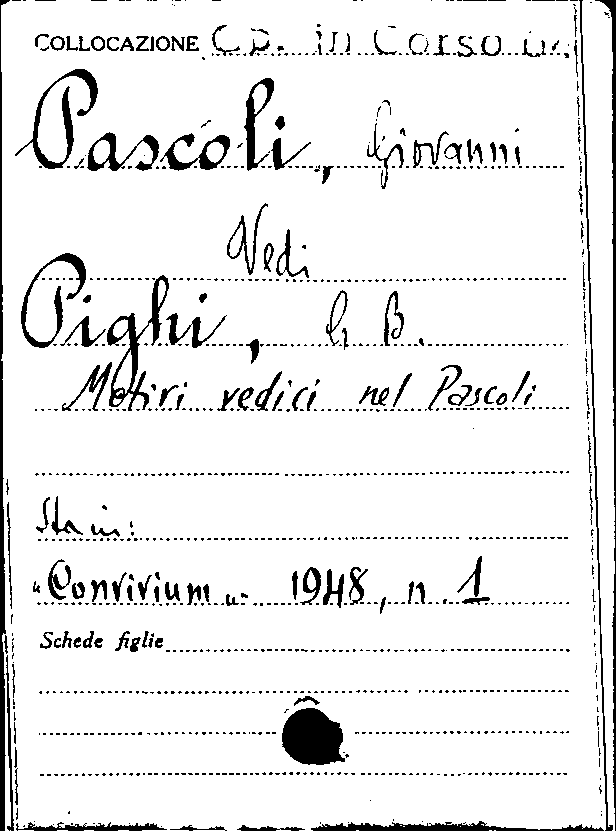 COLLOCAZIONE C.P. in Corso
Pascoli, Giovanni
Vedi
Pighi, G B.
Motivi vedici nel Pascoli
Sta in:
"Convivium" 1948, n. 1
Schede figlie